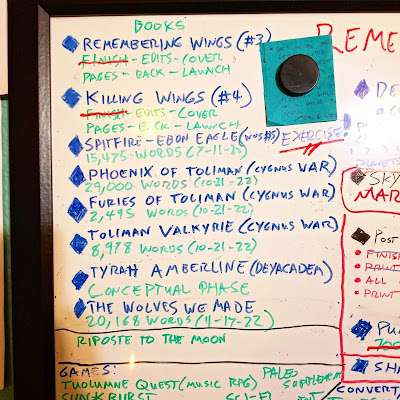 BOOKS
REMEMBERING WINGS (#3)
FINISH - EDITS - COVER
PAGES - BACK - LAUNCH
KILLING WINGS (#4)
FINISH - EDITS - COVER
PAGES - BACK - LAUNCH
SPITFIRE - EBON EAGLE
15,475 WORDS (7-11-23)
EXERCISE!
PHOENIX OF TOLIMAN (CYGNUS WAR)
29,000 WORDS (10-21-22)
FURIES OF TOLIMAN (CYGNUS WAR)
2,495 WORDS (10-21-22)
TOLIMAN VALKYRIE (CYGNUS WAR)
8,978 WORDS (10-21-22)
TYRAH AMBERLINE (DEYACADEA)
CONCEPTUAL PHASE
THE WOLVES WE MADE
20,168 WORDS (11-17-22)
RIPOSTE TO THE MOON
GAMES:
TUOLUMNE QUEST (MUSIC RPG)
SUNKBURST
PALEO
SCI-FI
REME
DE
SKY
MAR
POST
FINISH
PRINT
ALL
PRINT
PU
700
SHA
CONVERT